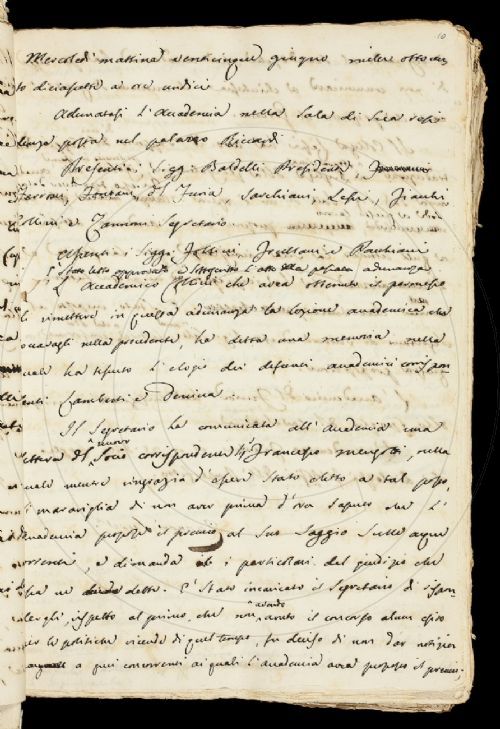 10
Mercoledì mattina venticinque giugno mille ottocen
to diciasette a ore undici
Adunatasi l'Accademia nella Sala di Sua resi
denza posta nel palazzo Riccardi
Presenti i Sigg. Baldelli Presidente
Ferroni, Fontani, del Furia, Sarchiani, Lessi,
Collini e Zannoni Segretario
Assenti i Sigg.
È stato letto approvato e sottoscritto l'atto della passata adunanza
L'Accademico Collini che avea ottenuto il permesso
di rimettere in questa adunanza la lezione accademica che
nella precedente, ha detta una memoria nella
quale ha tessuto l'elogio dei defunti accademici corrispon
denti Lamberti e Denina
Il Segretario ha comunicata all'Accademia una
lettera del nuovo Socio corrispondente Sig. Francesco Mengotti, nella
quale mentre ringrazia d'essere stato eletto a tal posto,
si maraviglia di non aver prima d'ora saputo che l'
Accademia propose il premio al suo Saggio sulle acque
correnti, e dimanda i particolari del giudizio che
ne detto. È stato incaricato il Segretario di rispon
dergli, rispetto al primo, che non avendo avuto il concorso alcun esito
per le politiche vicende di quel tempo, fu deciso di non dar notizia
a quei concorrenti ai quali l'Accademia avea proposto il premio;